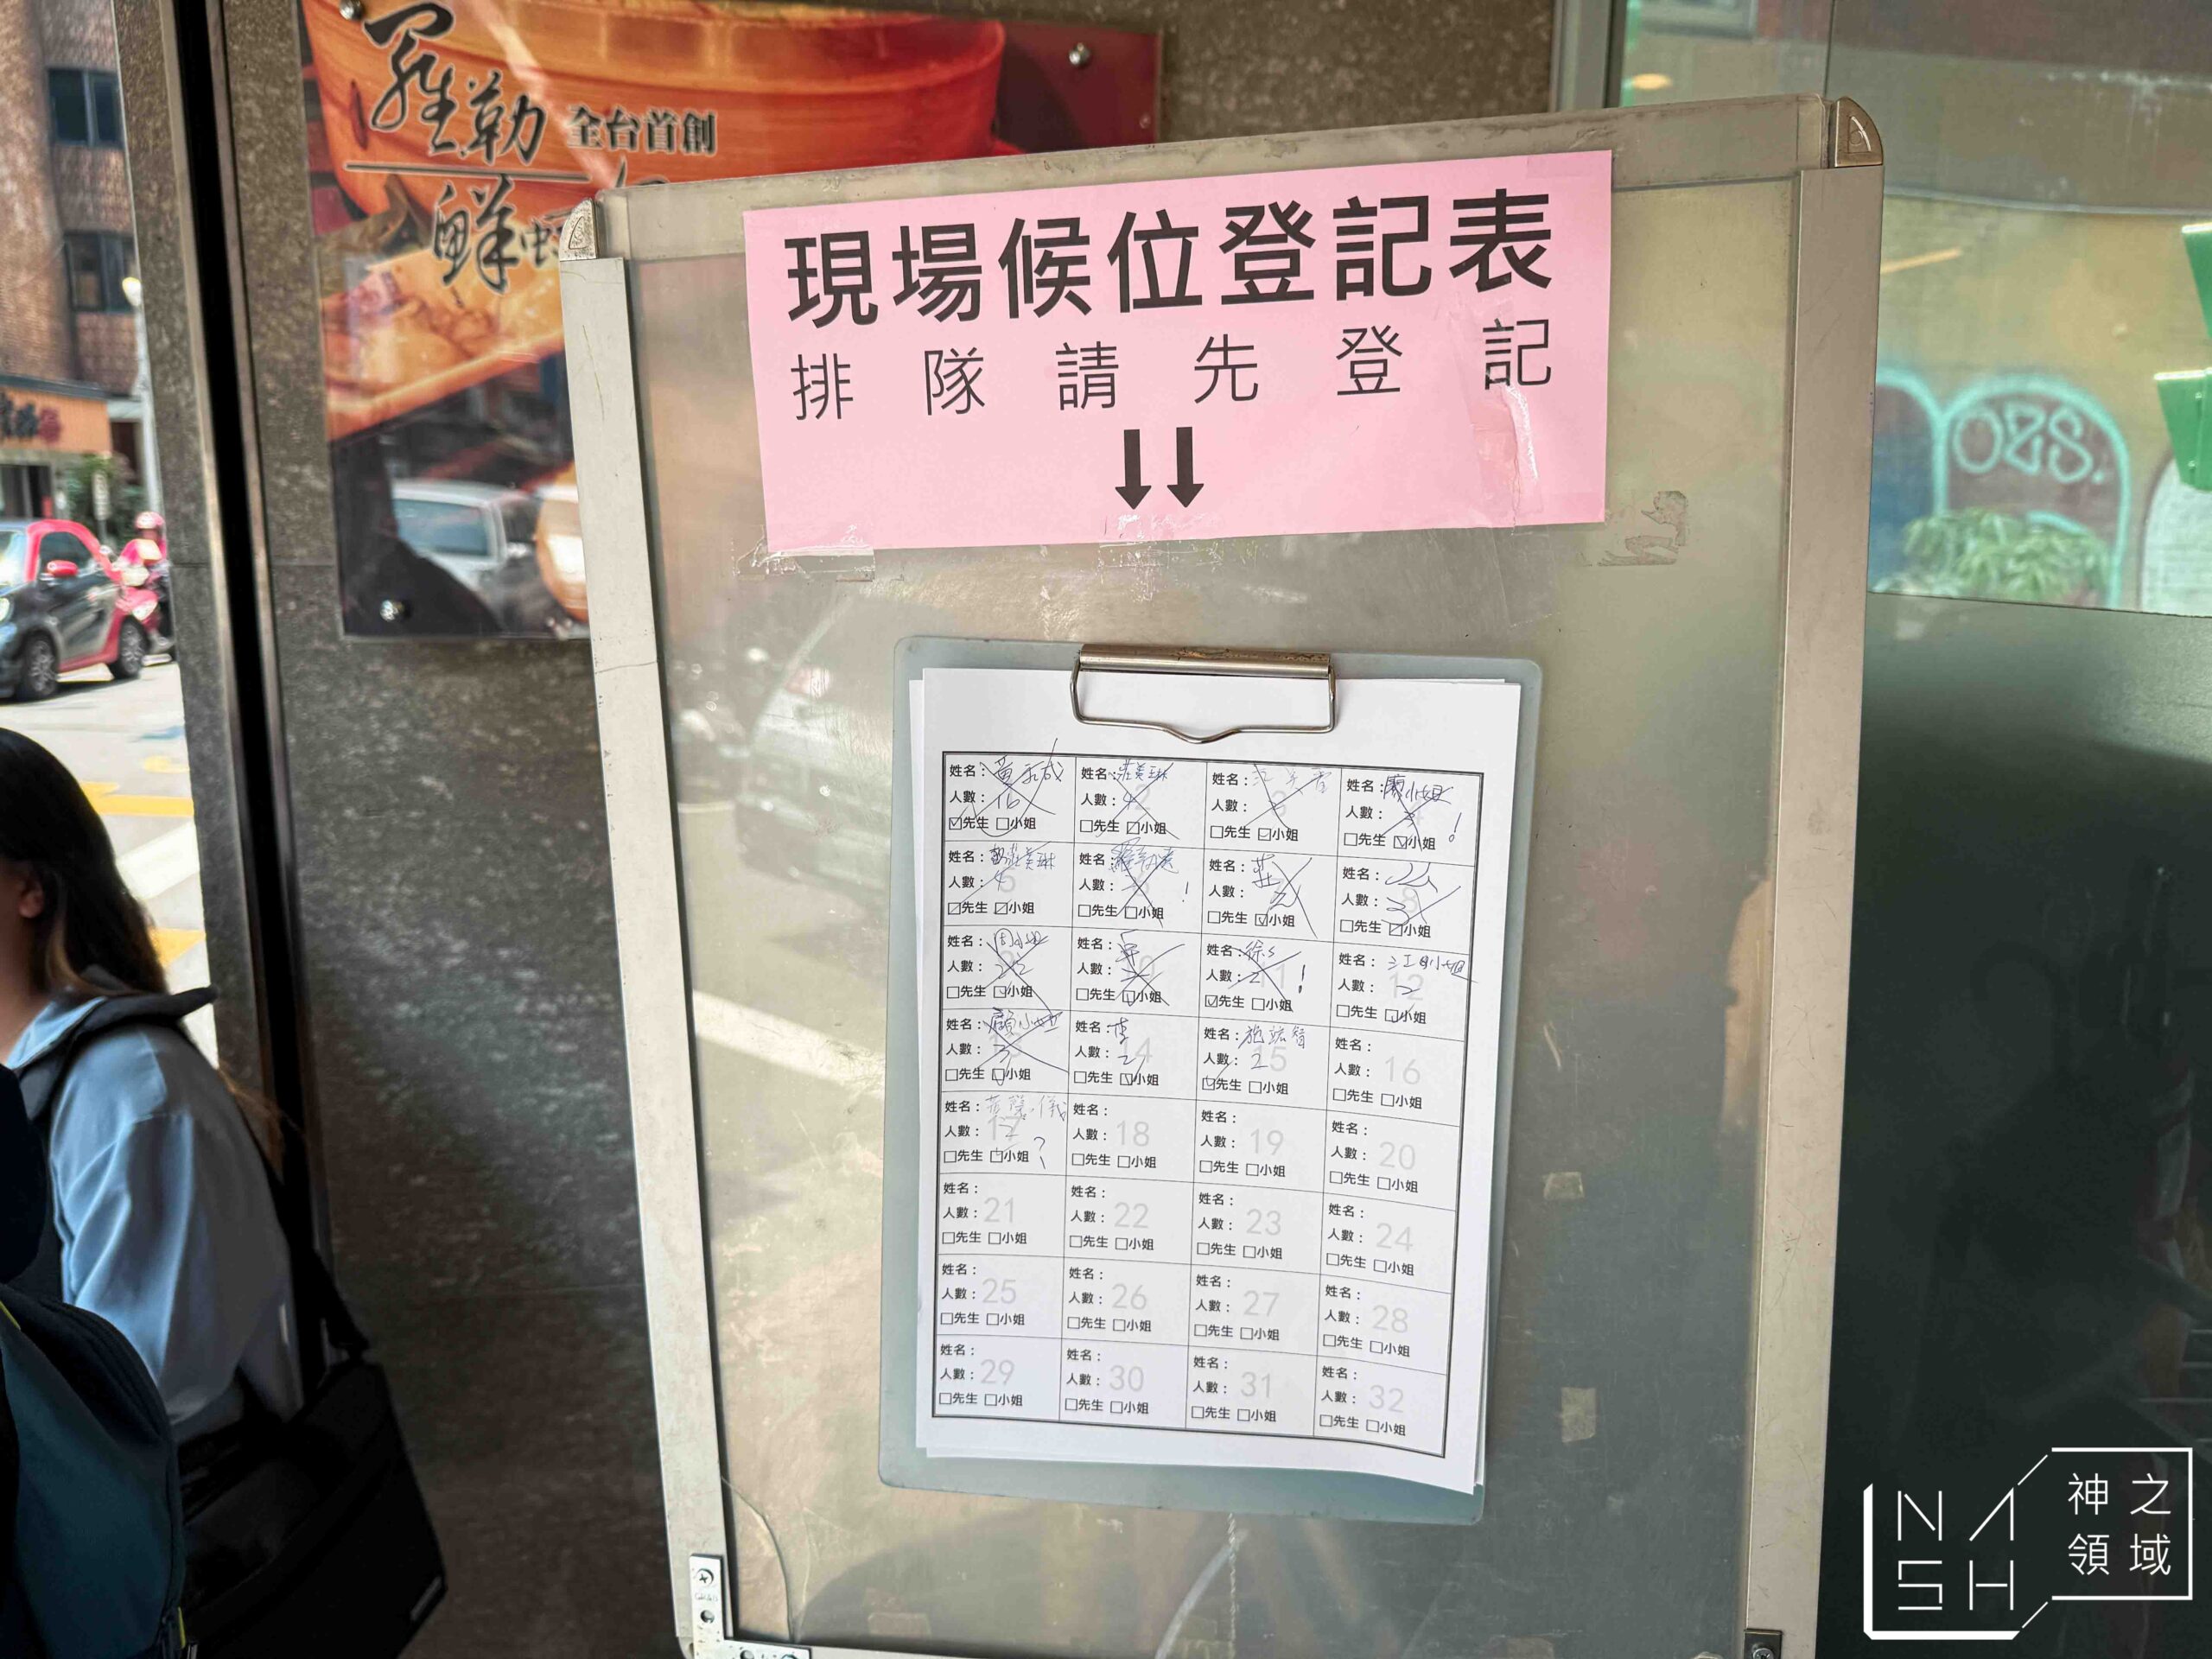 羅勒 全台首創
鮮蝦
現場候位登記表
排隊請先登記
姓名：
人數：16
☑先生 □小姐
姓名：莊美琳
人數：4
□先生 ☑小姐
姓名：
人數：
□先生 ☑小姐
姓名：廖小姐
人數：
□先生 ☑小姐 !
姓名：莊美琳
人數：4
☑先生 ☑小姐
姓名：
人數： !
□先生 □小姐
姓名：莊
人數：2
□先生 ☑小姐
姓名：
人數：3
□先生 ☑小姐
姓名：周小姐
人數：2
□先生 ☑小姐
姓名：
人數：
□先生 ☑小姐
姓名：徐
人數：2 !
☑先生 □小姐
姓名：江小姐
人數：2 12
□先生 ☑小姐
姓名：顧小姐
人數：3
□先生 ☑小姐
姓名：李
人數：2 14
□先生 ☑小姐
姓名：施
人數：2 15
☑先生 □小姐
姓名：
人數：16
□先生 □小姐
姓名：
人數：2 17
□先生 ☑小姐 ?
姓名：
人數：18
□先生 □小姐
姓名：
人數：19
□先生 □小姐
姓名：
人數：20
□先生 □小姐
姓名：
人數：21
□先生 □小姐
姓名：
人數：22
□先生 □小姐
姓名：
人數：23
□先生 □小姐
姓名：
人數：24
□先生 □小姐
姓名：
人數：25
□先生 □小姐
姓名：
人數：26
□先生 □小姐
姓名：
人數：27
□先生 □小姐
姓名：
人數：28
□先生 □小姐
姓名：
人數：29
□先生 □小姐
姓名：
人數：30
□先生 □小姐
姓名：
人數：31
□先生 □小姐
姓名：
人數：32
□先生 □小姐
OZS.
NASH
神之
領域